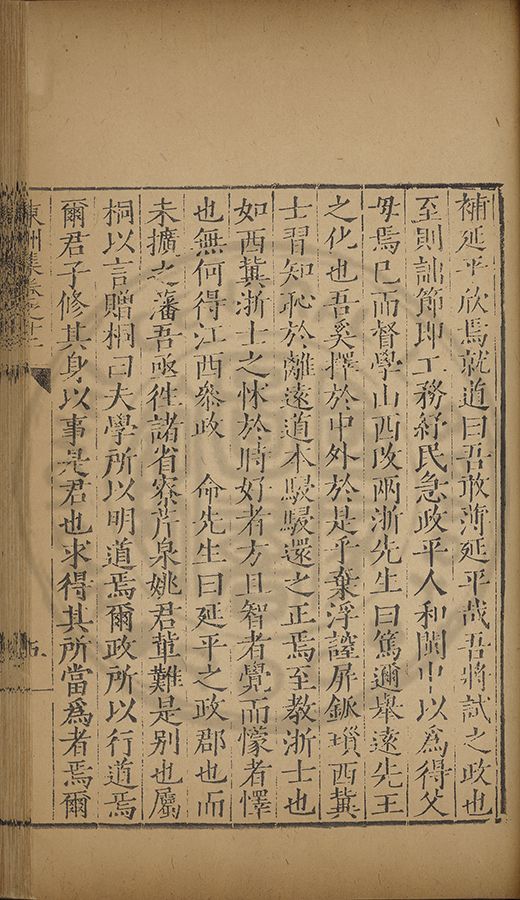 補延平欣焉就道曰吾敢薄延平哉吾將試之政也
至則詘節即工務紓民急政平人和閩中以爲得父
母焉已而督學山西改兩浙先生曰篤邇舉遠先王
之化也吾奚擇於中外於是乎棄浮證屏鈲瑣西冀
士習知恥於離遠道本駸駸還之正焉至教浙士也
如西冀浙士之怵於時好者方且智者覺而懞者懌
也無何得江西叅政 命先生曰延平之政郡也而
未擴之藩吾亟徃諸省寮芹泉姚君軰難是别也屬
桐以言贈桐曰夫學所以明道焉爾政所以行道焉
爾君子修其身以事是君也求得其所當爲者焉爾
東洲集卷之十二